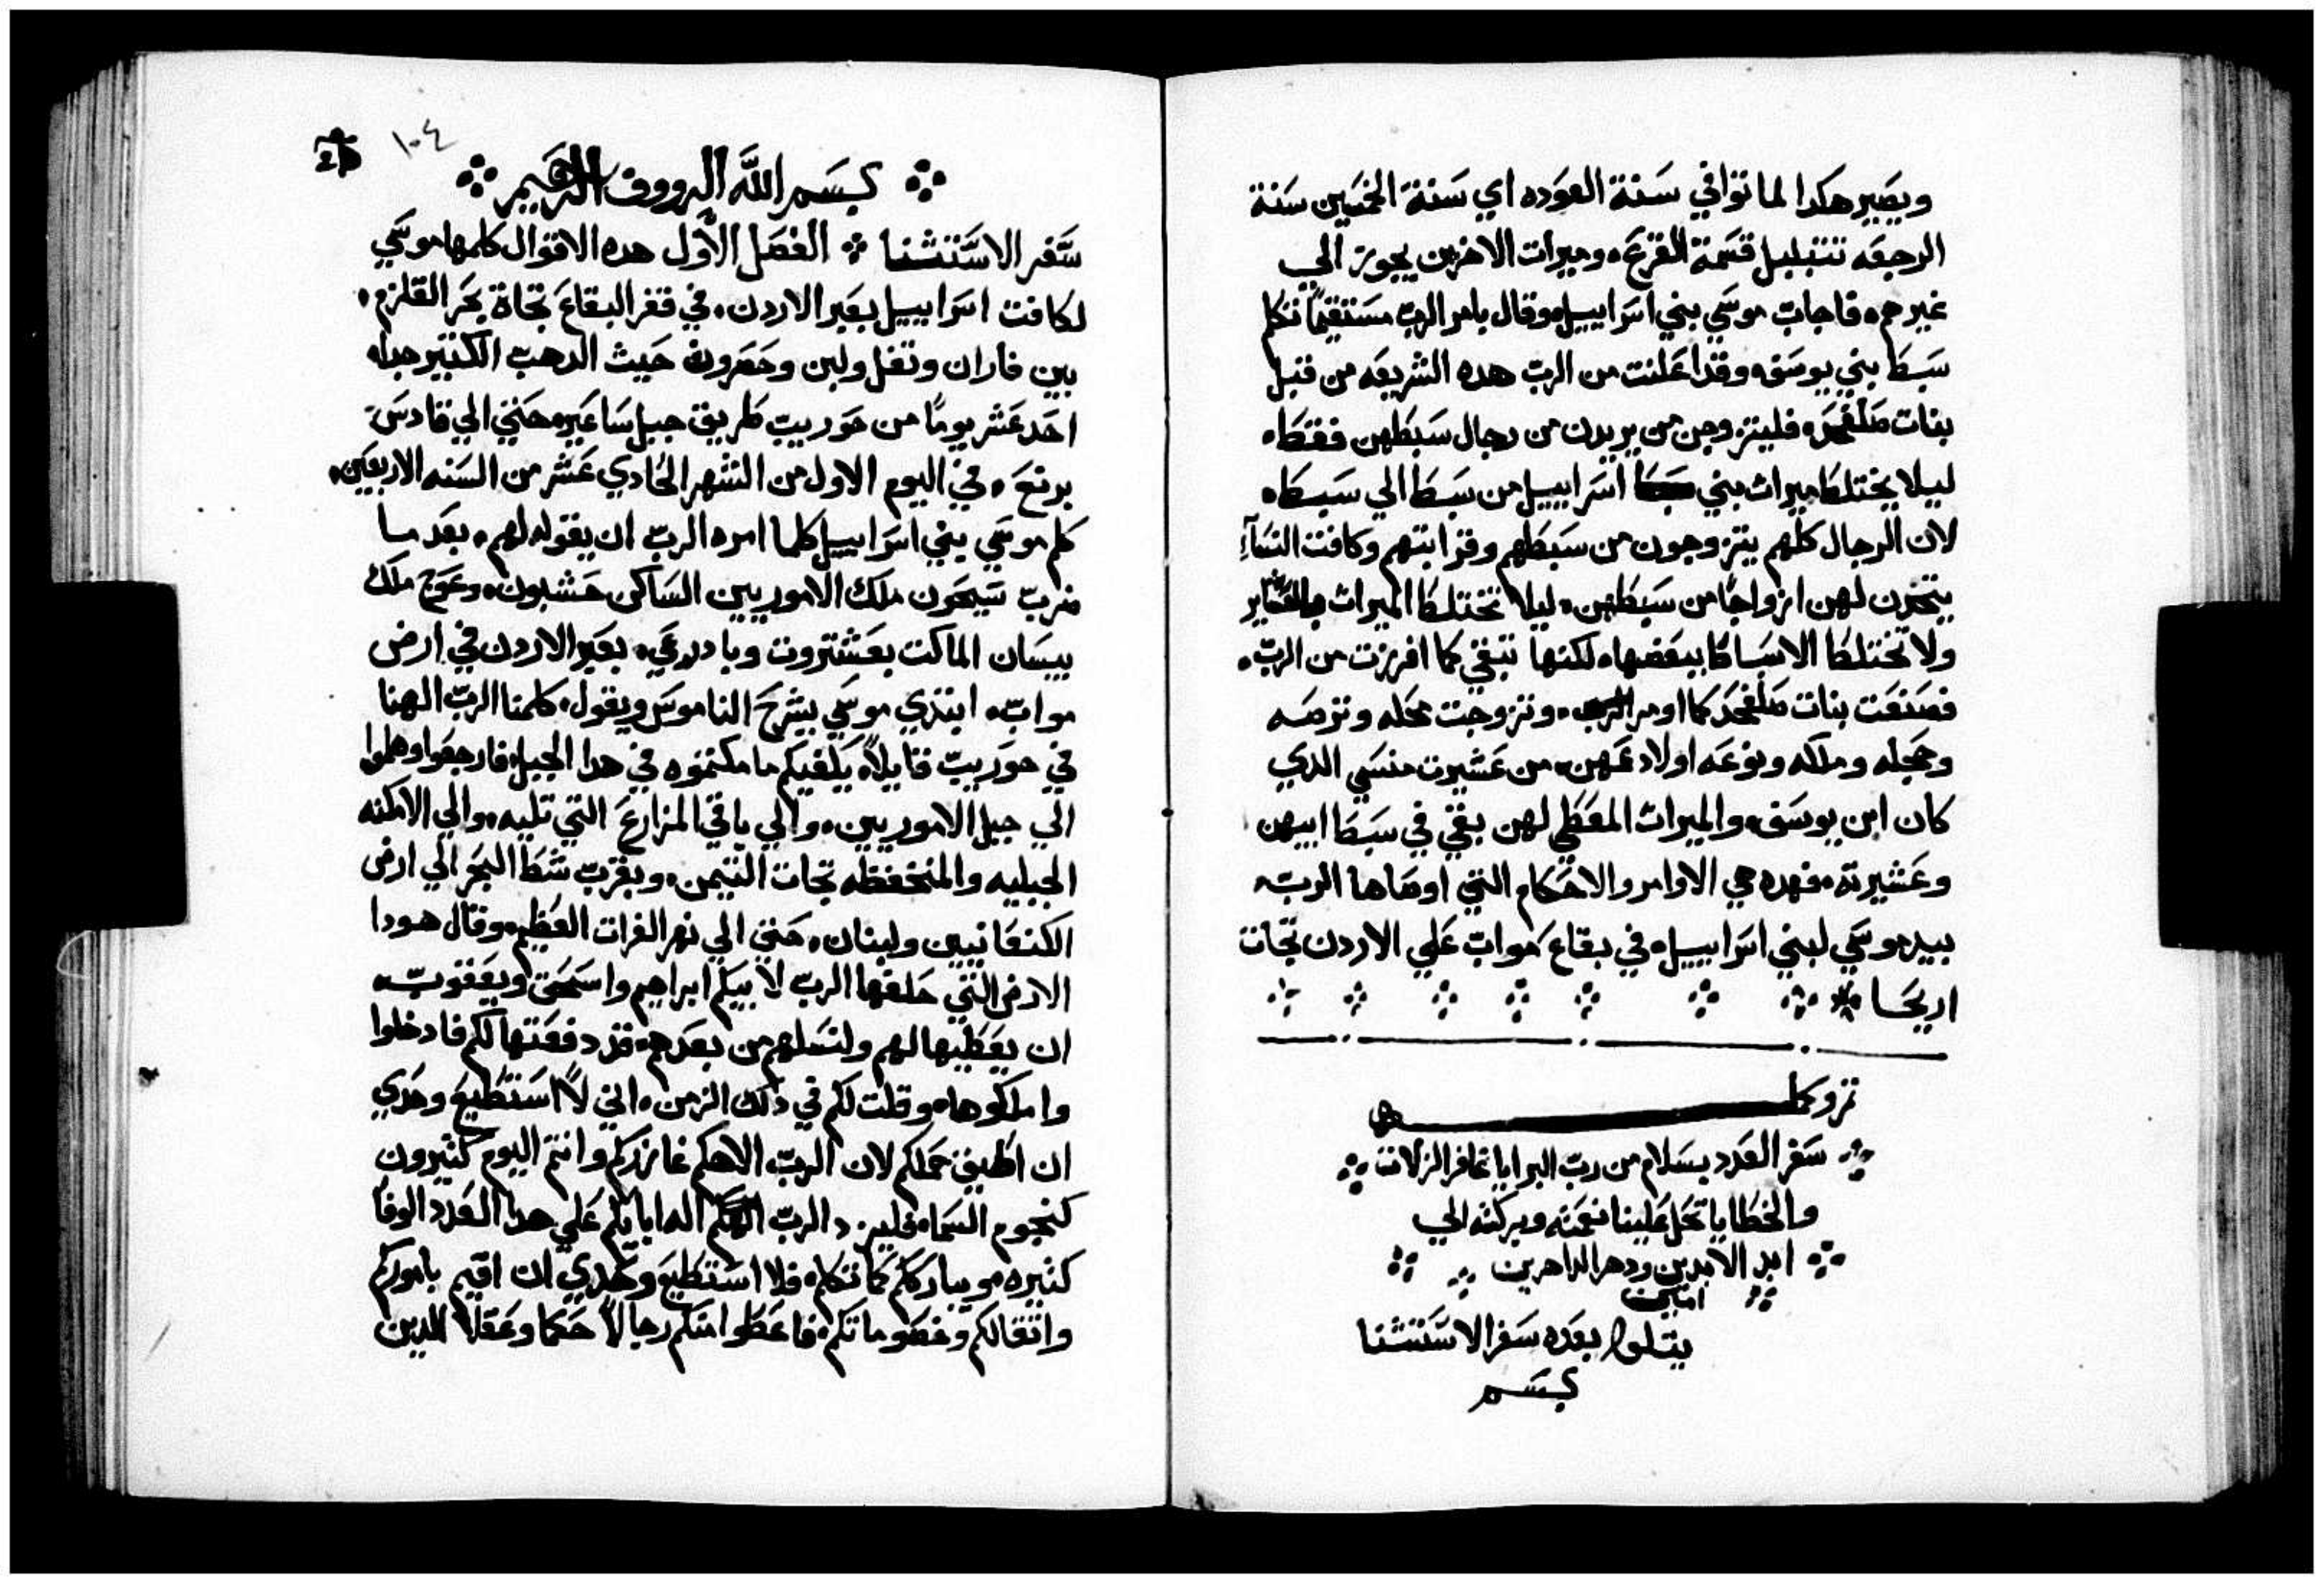 ويصير هكدا لما توافي سنة العوده اي سنة الخمسين سنة
الرجعه تتبلبل قسمة القرع، وميرات الاخرين يجوز الي
غيرهم، فاجاب موسي بني اسراييل وقال بامر الرب مستقيمًا تكلم
سبط بني يوسف، وقد اعلنت من الرب هده الشريعه من قبل
بنات صلفحد، فليتزوجن من يريدن من رجال سبطهن فقط،
ليلا يختلط ميرات بني اسراييل من سبط الي سبط،
لان الرجال كلهم يتزوجون من سبطهم وقرابتهم وكافت النسآء
يتخدن لهن ازواجًا من سبطهن، ليلا تختلط الميرات بالعشاير
ولا تختلط الاسباط ببعضها، لكنها تبقي كما افرزت من الرب،
فصنعت بنات صلفحد كما اومر الرب، وتزوجت محله وترصه
وحجله وملكه ونوعه اولاد عمهن، من عشيرت منسي الدي
كان ابن يوسف، والميرات المعطي لهن بقي في سبط ابيهن
وعشيرته، فهده هي الاوامر والاحكام التي اوصاها الرب،
بيد موسي لبني اسراييل، في بقاع مواب علي الاردن تجات
اريحا
سفر العدد بسلام من رب البرايا غافر الزلات
والخطايا تحل علينا نعمته وبركته الي
ابد الابدين ودهر الداهرين
امين
يتلوا بعده سفر الاستتنا
بسم
١٠٤
بسم الله الرووف الرحيم
سفر الاستتنا الفصل الاول هده الاقوال كلمها موسي
لكافت اسراييل بعبر الاردن، في قفر البقاع تجاة بحر القلزم،
بين فاران وتفل ولبن وحصروف حيث الدهب الكتير جدا،
احد عشر يومًا من حوريب طريق جبل ساعير، حتي الي قادس
برنع، في اليوم الاول من الشهر الحادي عشر من السنه الاربعين،
كلم موسي بني اسراييل كلما امره الرب ان يقوله لهم، بعد ما
ضرب سيحون ملك الاموريين الساكن حشبون، وعوج ملك
بيسان الماكت بعشتروت وبادرعي، بعبر الاردن في ارض
مواب، ابتدي موسي بشرح الناموس ويقول، كلمنا الرب الهنا
في حوريب قايلاً، يكفيكم ما مكتموه في هدا الجبل، فارجعوا وهلموا
الي جبل الاموريين، والي باقي المزارع التي تليه، والي الامكنه
الجبليه والمنخفظه تجات التيمن، وبقرب شط البحر الي ارض
الكنعانيين ولبنان، حتي الي نهر الفرات العظيم، وقال هودا
الارض التي حلفها الرب لابيكم ابراهيم واسحق ويعقوب،
ان يعطيها لهم ولنسلهم من بعدهم، قد دفعتها لكم فادخلوا
واملكوها، وقلت لكم في دلك الزمن، اني لا استطيع وحدي
ان اطيق حملكم لان الرب الاهكم غازركم وانتم اليوم كثيرون
كنجوم السما، فليزد الرب الهكم اله ابايكم علي هدا العدد الوفًا
كتيره، ويبارككم كما تكلم، فلا استطيع وحدي ان اقيم باموركم
واتقالكم وخصوماتكم، فاعطوا منكم رجالاً حكما وعقلا الدين